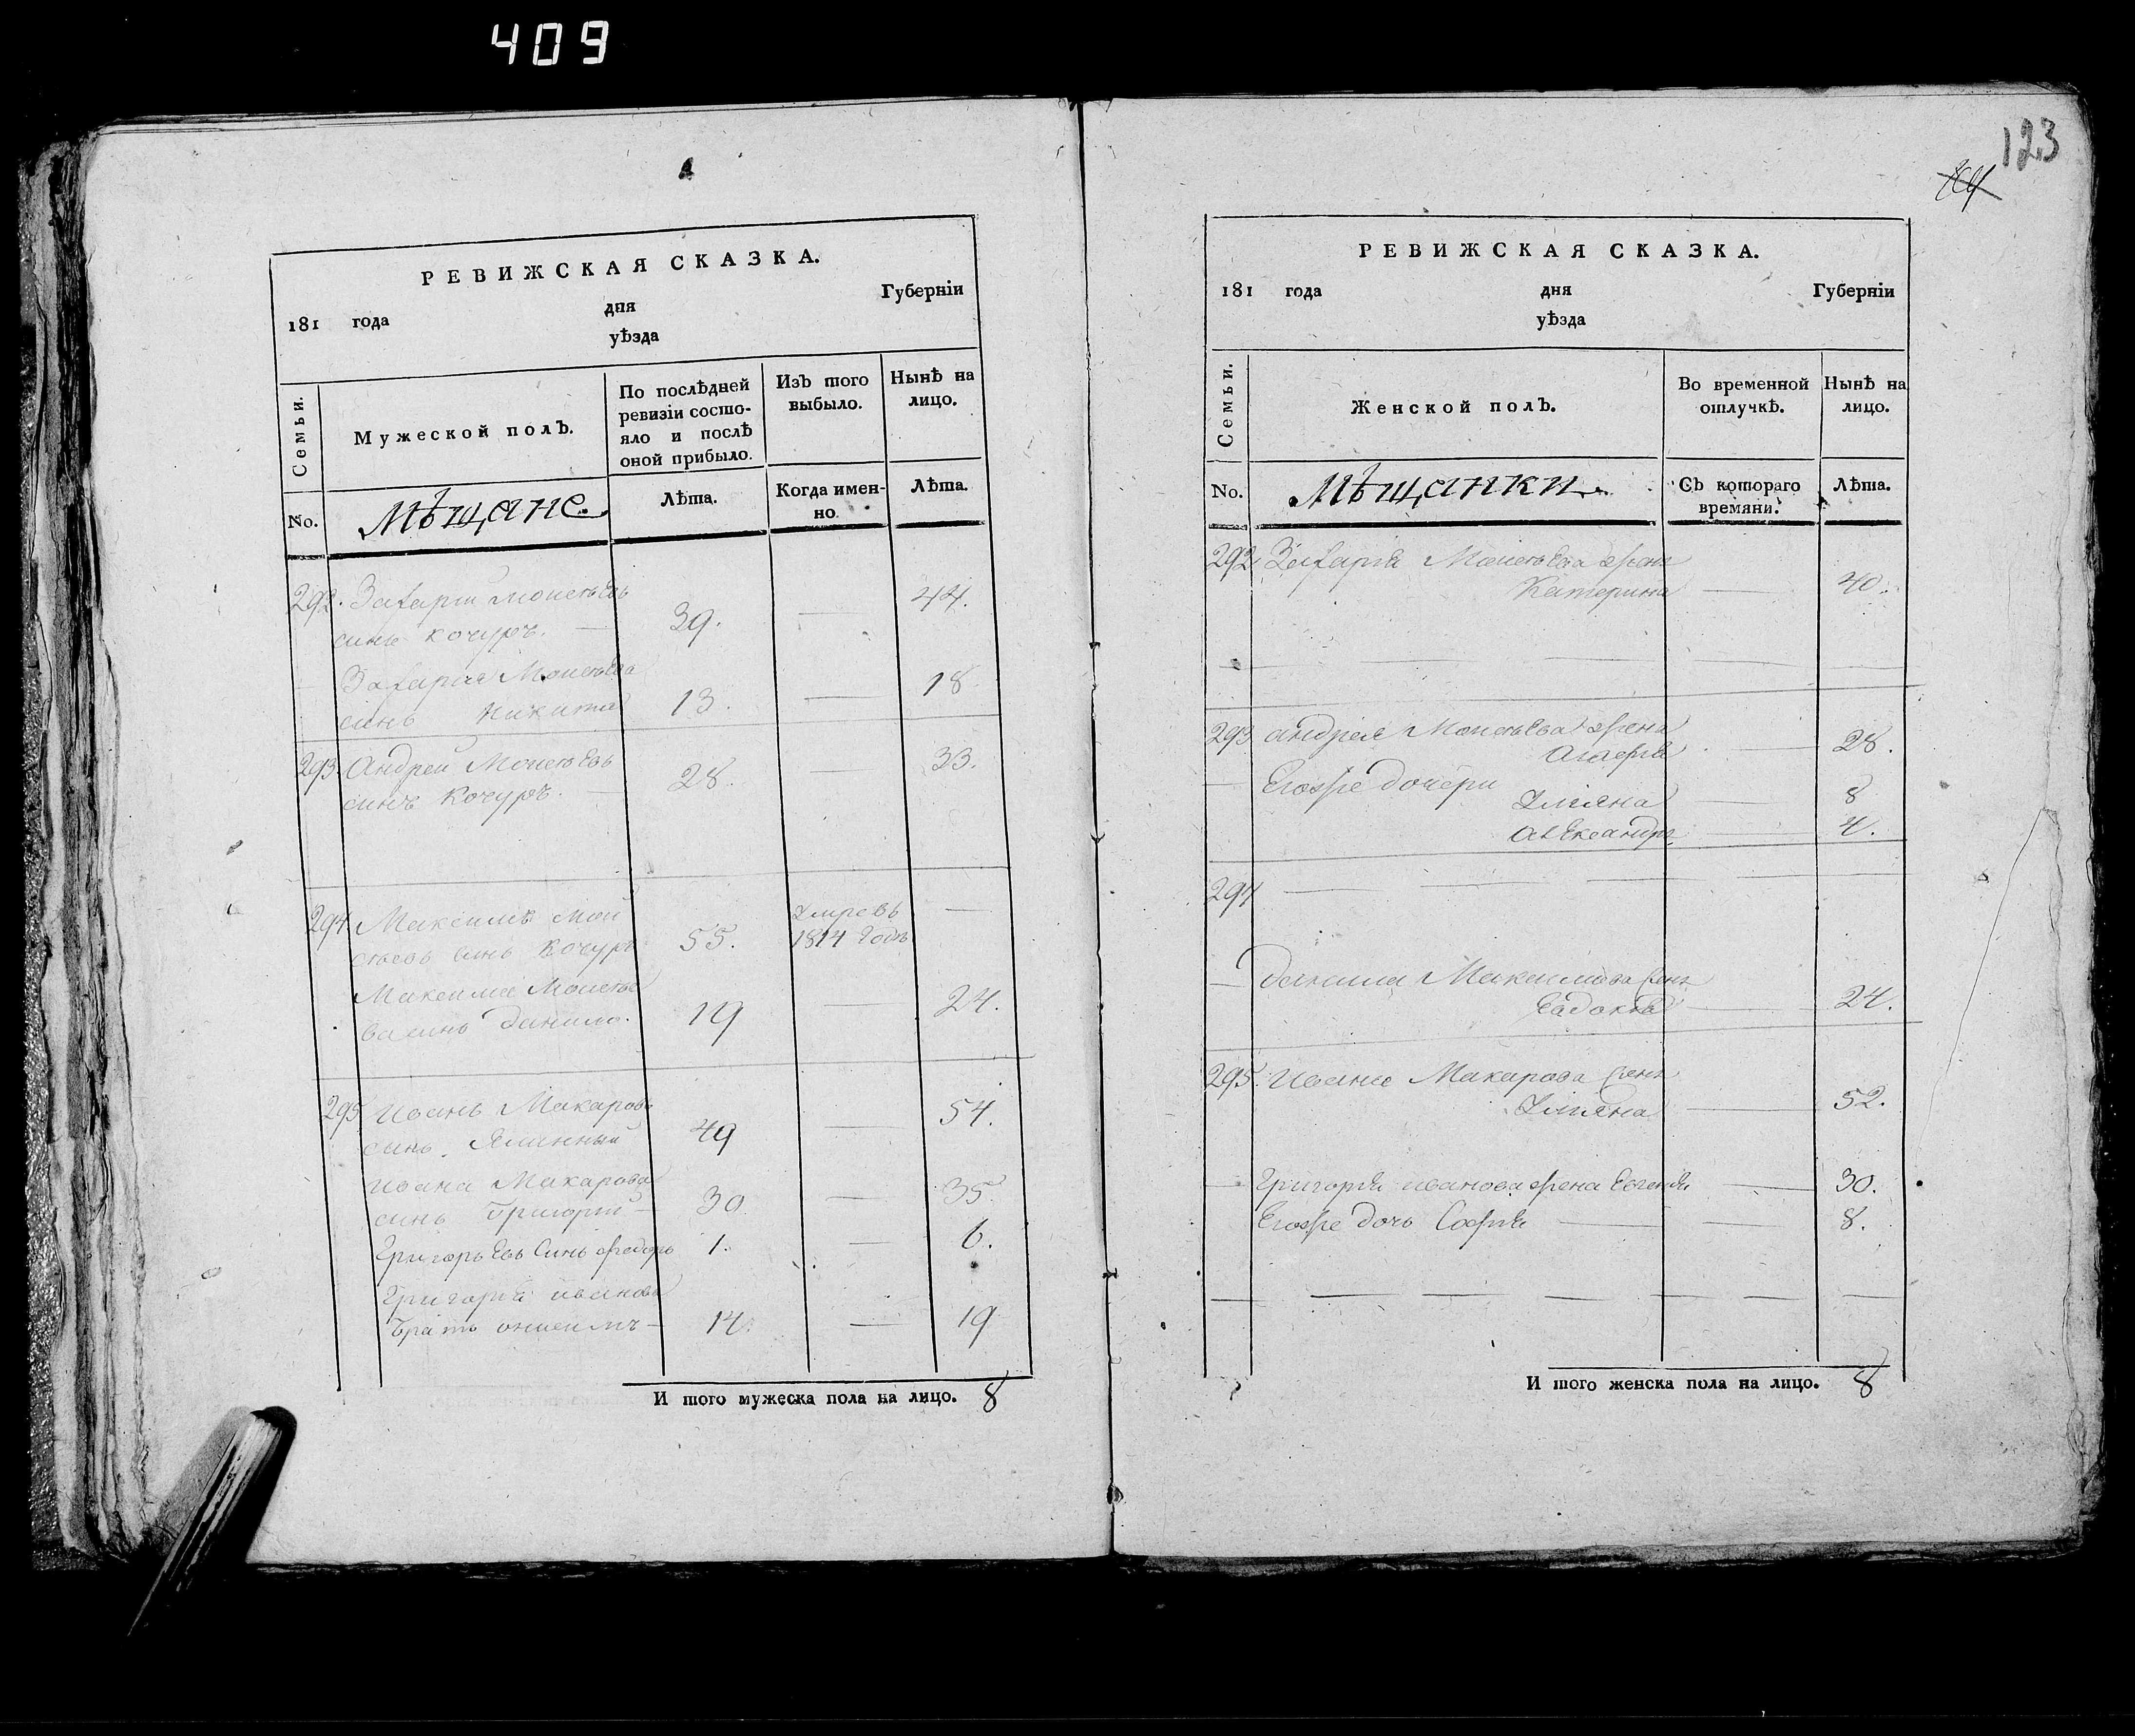 409
РЕВИЖСКАЯ СКАЗКА.
181 года дня Губернїи
уѣзда
Семьи.
Мужеской полъ.
По послѣдней ревизїи состо-
яло и послѣ
оной прибыло.
Изъ того
выбыло.
Нынѣ на
лицо.
No.
Мѣщане.
Лѣта.
Когда имен-
но.
Лѣта.
292. Захарїй Моисѣевъ
синъ Кочуръ. — 39. — 44.
— Захарїя Моисѣева
синъ Никита 13. — 18.
293. Андрей Моисѣевъ
синъ Кочуръ. — 28. — 33.
294 Максимъ Мои
сѣевъ синъ Кочуръ 55. Умревъ 1814 Годъ —
Максима Моисѣе
ва синъ Данило. 19 — 24.
295 Иванъ Макаровъ
синъ 49 — 54.
Ивана Макарова
синъ Григорїй — 30. — 35.
Григорьевъ Синъ Федоръ 1. — 6.
Григорїя Иванова
братъ Онисимъ — 14. — 19
И того мужеска пола на лицо. 8
123
РЕВИЖСКАЯ СКАЗКА.
181 года дня Губернїи
уѣзда
Семьи.
Женской полъ.
Во временной
отлучкѣ.
Нынѣ на
лицо.
No.
Мѣщанки.
Съ котораго
времяни.
Лѣта.
292 Захарїя Моисѣева жена
Катерина — 40.
293 Андрея Моисѣева жена
Агафїя — 28.
— Егожъ дочери
Улїяна — 8
Александра — 4.
294
— Данила Максимова жена
Евдокїя — 24.
295. Ивана Макарова жена
Улїяна — 52.
— Григорїя Иванова жена Евгенїя — 30.
Егожъ дочь Софїя — 8.
И того женска пола на лицо. 8